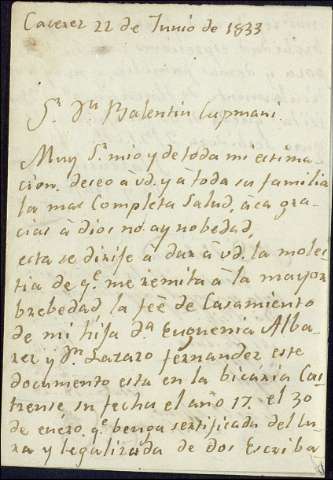 Caceres 22 de Junio de 1833
Sr. Dn Balentin Capmani.
Muy Sr. mio y de toda mi estima
cion. deseo à vd. y à toda su familia
la mas Completa Salud, aca gra
cias à dios no ay nobedad,
esta se dirije à dar à vd. la moles
tia de qe. me remita à la mayor
brebedad, la feè de Casamiento
de mi hija Da Euguenia Alba
rez y Dn. Lazaro fernandez este
documento esta en la bicaria Cas
trense, su fecha el año 17. el 30
de enero, qe. benga sertificada del Cu
ra y legalizada de dos Escriba